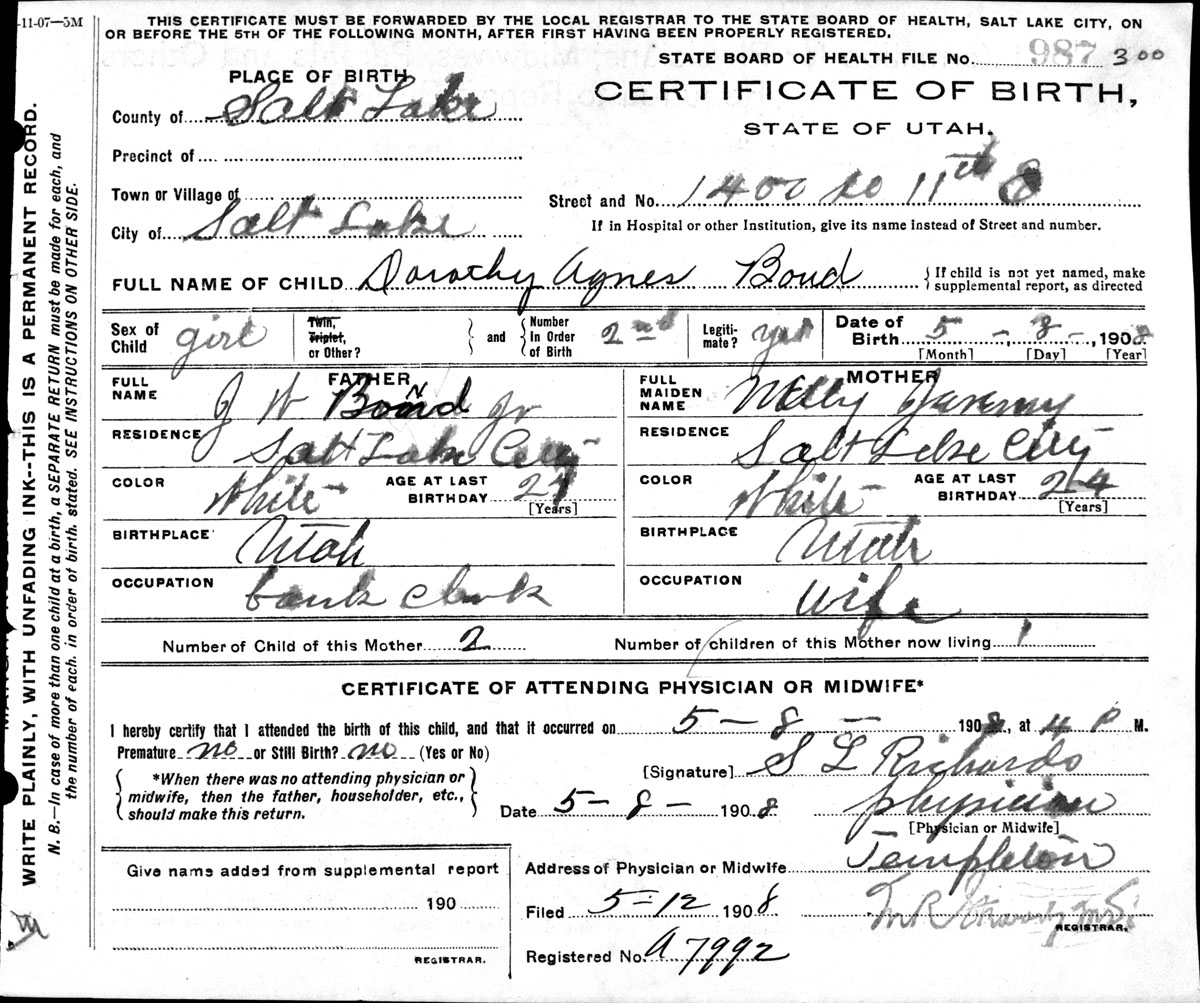 -11-07—5M
THIS CERTIFICATE MUST BE FORWARDED BY THE LOCAL REGISTRAR TO THE STATE BOARD OF HEALTH, SALT LAKE CITY, ON
OR BEFORE THE 5TH OF THE FOLLOWING MONTH, AFTER FIRST HAVING BEEN PROPERLY REGISTERED.
STATE BOARD OF HEALTH FILE No. 987 300
PLACE OF BIRTH
CERTIFICATE OF BIRTH,
STATE OF UTAH.
County of Salt Lake
Precinct of
Town or Village of
Street and No. 1400 So 11th E
City of Salt Lake
If in Hospital or other Institution, give its name instead of Street and number.
FULL NAME OF CHILD Dorothy Agnes Bond
{If child is not yet named, make
supplemental report, as directed
Sex of Child girl
Twin, Triplet, or Other? } and { Number In Order of Birth 2nd
Legiti-mate? yes
Date of Birth 5 - 8 -, 1908
[Month] [Day] [Year]
FATHER
FULL NAME J W Bond Jr
RESIDENCE Salt Lake City
COLOR White AGE AT LAST BIRTHDAY 27
[Years]
BIRTHPLACE Utah
OCCUPATION bank clerk
MOTHER
FULL MAIDEN NAME Nelly Jeremy
RESIDENCE Salt Lake City
COLOR White AGE AT LAST BIRTHDAY 24
[Years]
BIRTHPLACE Utah
OCCUPATION wife
Number of Child of this Mother 2 Number of children of this Mother now living 1
CERTIFICATE OF ATTENDING PHYSICIAN OR MIDWIFE*
I hereby certify that I attended the birth of this child, and that it occurred on 5 - 8 - 1908, at 4 P M.
Premature no or Still Birth? no (Yes or No)
{ *When there was no attending physician or
midwife, then the father, householder, etc.,
should make this return. }
[Signature] S L Richards
Date 5 - 8 - 1908 physician
[Physician or Midwife]
Address of Physician or Midwife Templeton
Give name added from supplemental report
190
REGISTRAR.
Filed 5-12 1908
REGISTRAR.
Registered No. A 7992
WRITE PLAINLY, WITH UNFADING INK--THIS IS A PERMANENT RECORD.
N. B.—In case of more than one child at a birth, a SEPARATE RETURN must be made for each, and
the number of each, in order of birth, stated. SEE INSTRUCTIONS ON OTHER SIDE.